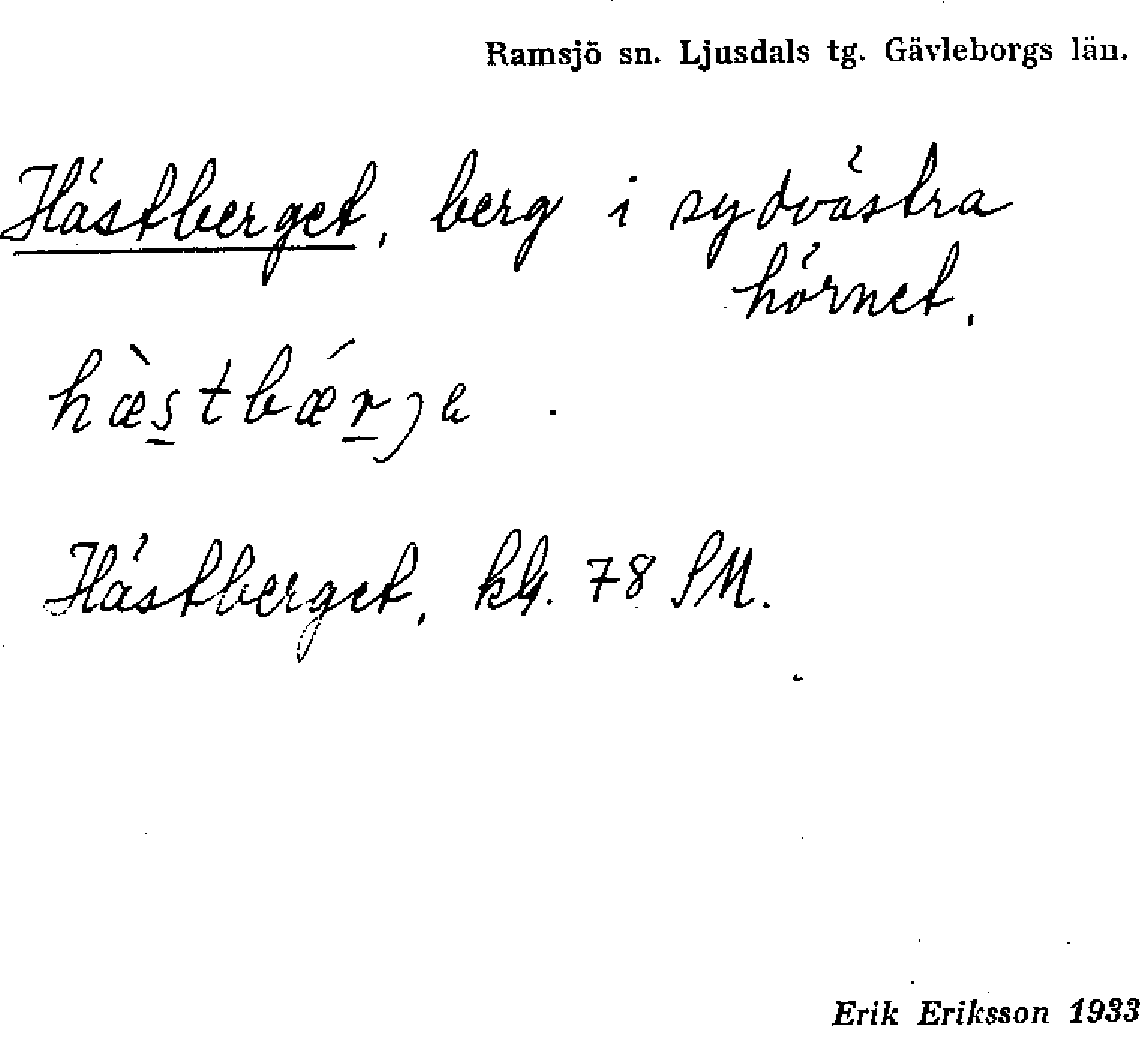 Ramsjö sn. Ljusdals tg. Gävleborgs län.
Hästberget, berg i sydvästra
hörnet.
hæ̀s̱tbǽṟje.
Hästberget, kbl. 78 SM.
Erik Eriksson 1933